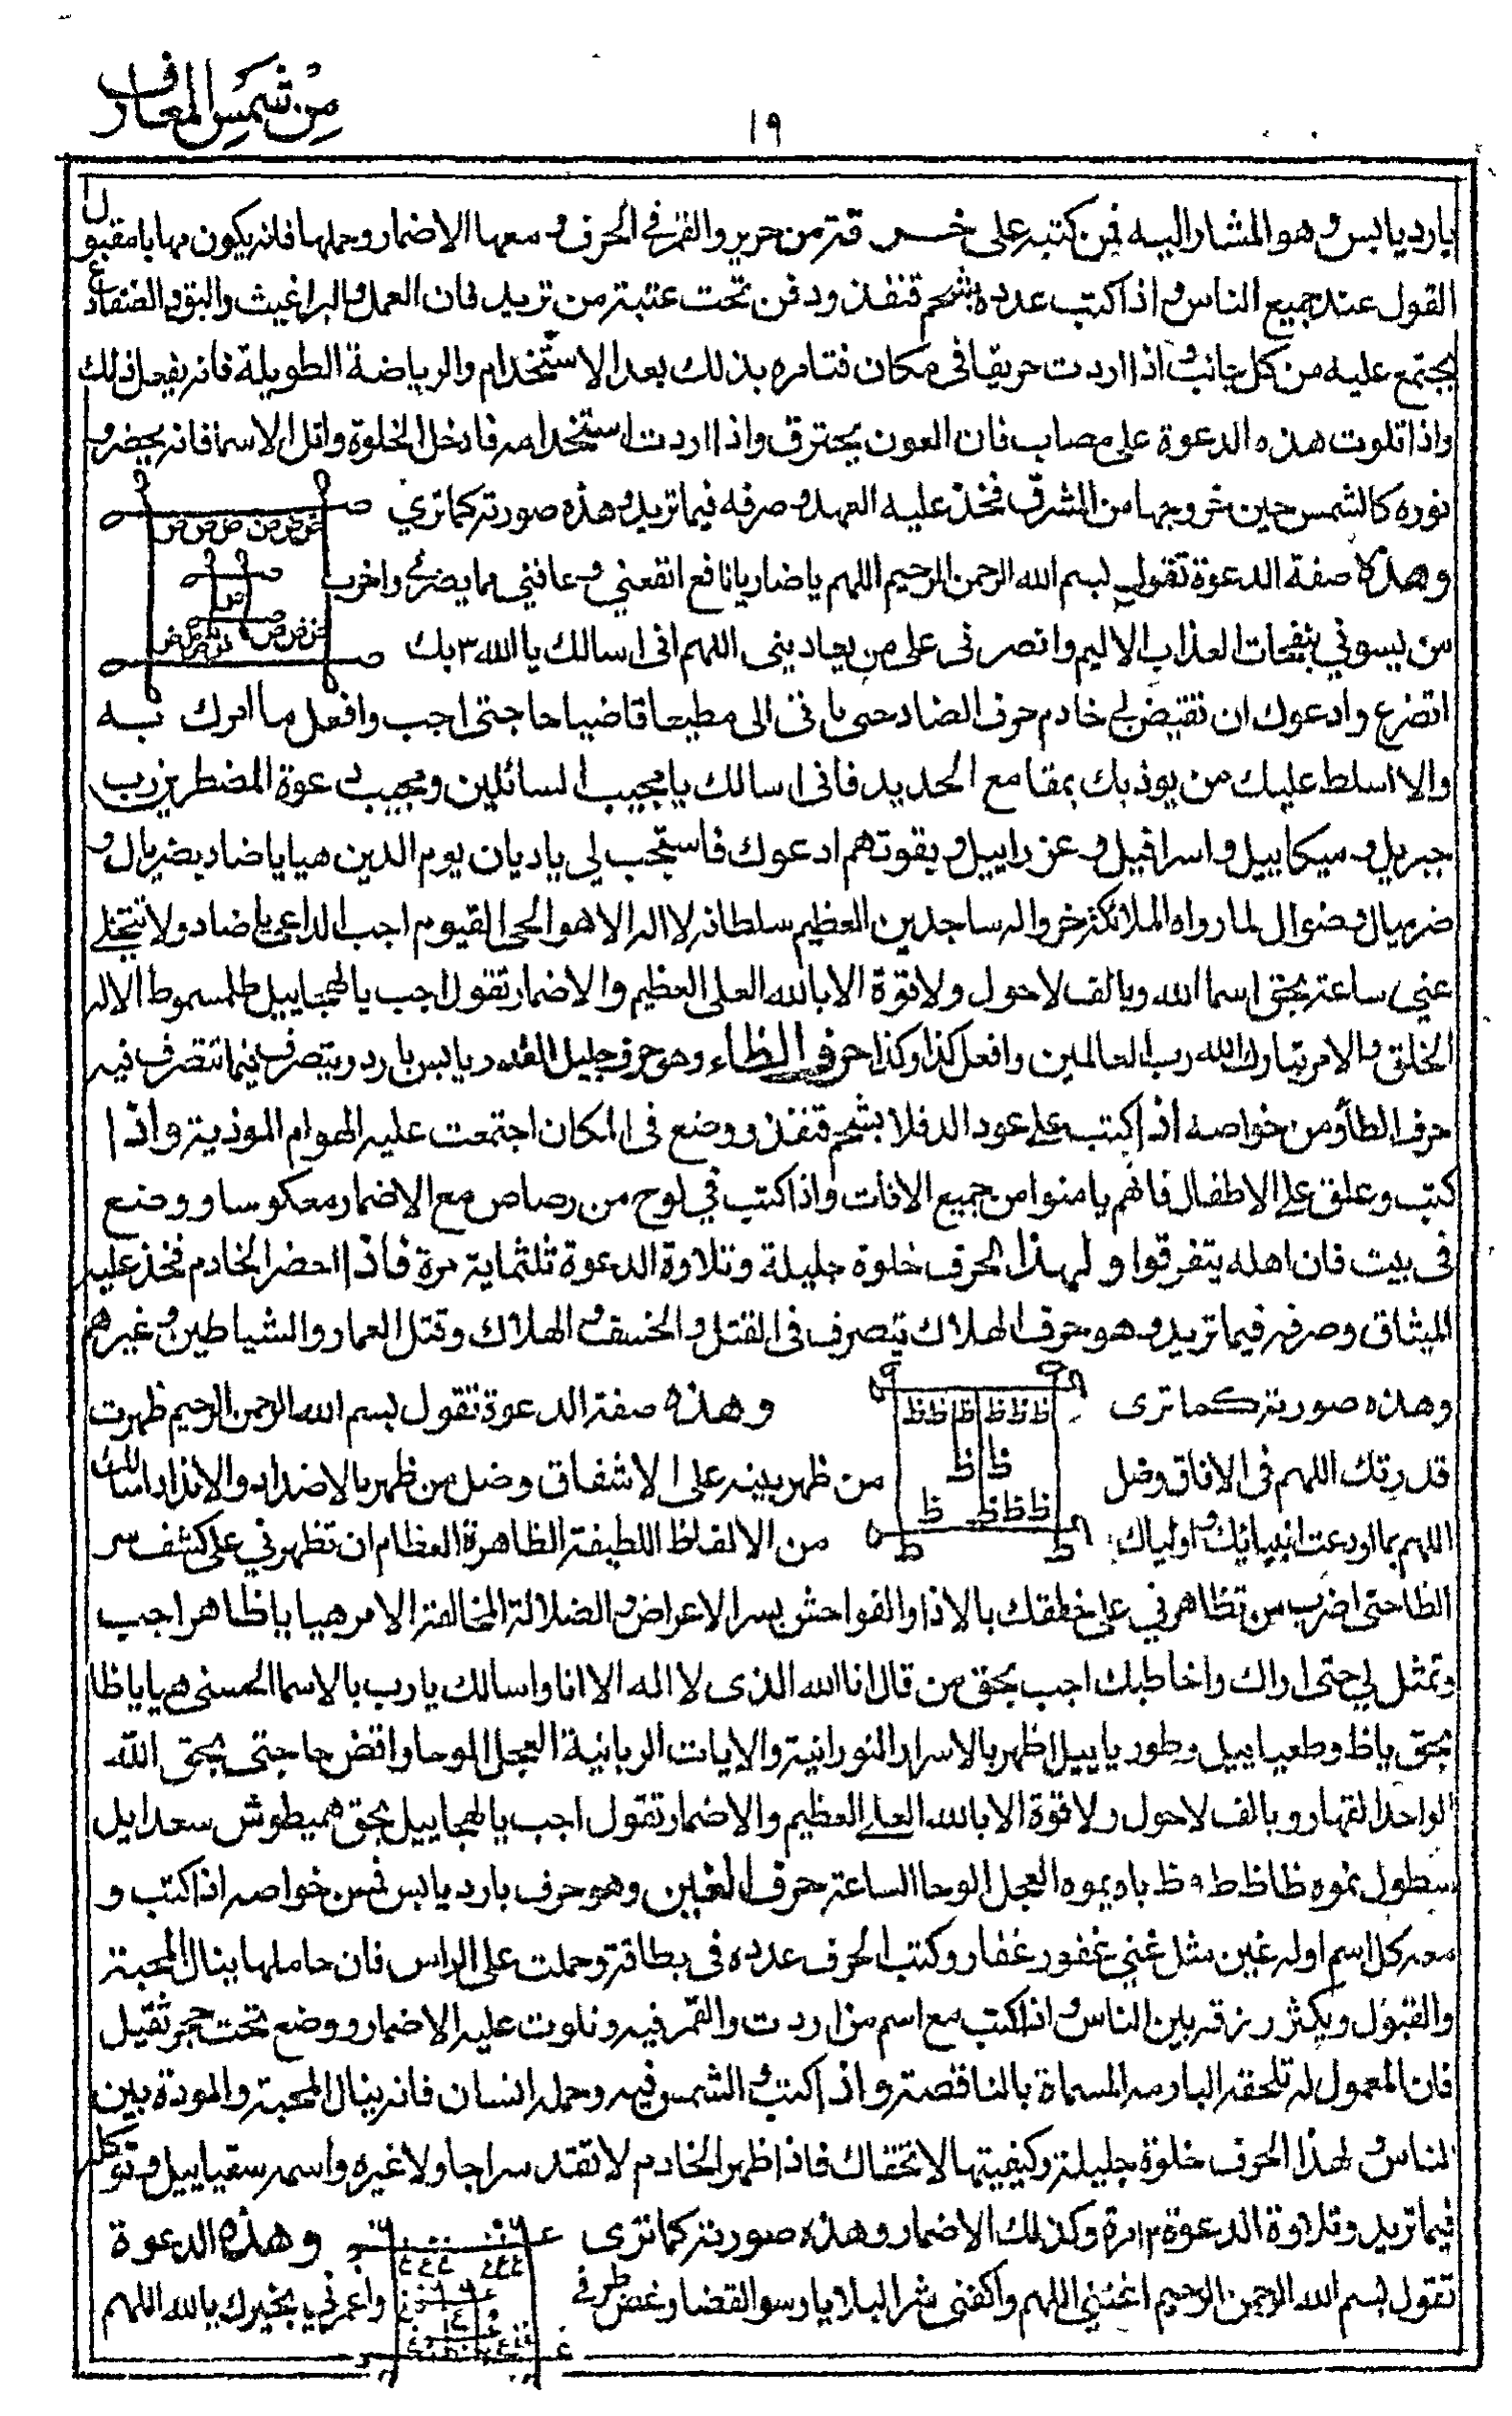 من شمس المعارف
١٩
بارد يابس وهو المشار اليه فمن كتبه على خرقة من حرير والقمر في الحرف ومعها الاضمار وحملها فانه يكون مهابا مقبول
القول عند جميع الناس واذا كتب عدده بشحم قنفذ ودفن تحت عتبة من تريد فان العمل والبراغيث والبق والضفادع
يجتمع عليه من كل جانب واذا اردت حريقا في مكان فتامره بذلك بعد الاستخدام والرياضة الطويلة فانه يفعل ذلك
واذا تلوت هذه الدعوة على مصاب فان العون يحترق واذا اردت استخدامه فادخل الخلوة واتل الاسما فانه يحضر و
نوره كالشمس حين خروجها من المشرق فخذ عليه العهد وصرفه فيما تريد وهذه صورته كما تري
وهذه صفة الدعوة تقول بسم الله الرحمن الرحيم اللهم يا ضار يا نافع انفعني وعافني مما يضرني واضرب
من يسوني بنفحات العذاب الاليم وانصرني على من يعاديني اللهم اني اسالك يا الله ٣ بك
اتضرع وادعوك ان تقيض لي خادم حرف الضاد حتى ياتي الي مطيعا قاضيا حاجتي اجب وافعل ما امرك به
والا اسلط عليك من يوذبك بمقامع الحديد فاني اسالك يا مجيب السائلين ومجيب دعوة المضطرين رب
جبريل وميكاييل واسرافيل وعزراييل وبقوتهم ادعوك فاستجب لي يا ديان يوم الدين هيا يا ضاد بضريال و
ضرميال وضوال لما رواه الملائكة خروا له ساجدين العظيم سلطانه لا اله الا هو الحي القيوم اجب الداعي يا ضاد ولا تتخلي
عني ساعة بحق اسما الله وبالف لا حول ولا قوة الا بالله العلي العظيم والاضمار تقول اجب يا لهجاييل طلمسموط الا له
الخلق والامر تبارك الله رب العالمين وافعل كذا وكذا حرف الظاء وهو حرف جليل القدر يابس بارد ويتصرف فيما تتصرف فيه
حرف الطا ومن خواصه اذا كتب على عود الدفلا بشحم قنفذ ووضع في المكان اجتمعت عليه الهوام الموذية واذا
كتب وعلق على الاطفال فانهم يامنوا من جميع الافات واذا كتب في لوح من رصاص مع الاضمار معكوسا ووضع
في بيت فان اهله يتفرقوا ولهذا الحرف خلوة جليلة وتلاوة الدعوة ثلثماية مرة فاذا احضر الخادم فخذ عليه
الميثاق وصرفه فيما تريد وهو حرف الهلاك تتصرف في القتل والخسف والهلاك وقتل العمار والشياطين وغيرهم
وهذه صورته كما ترى ظ ظ ظ ظ ظ ظ وهذه صفة الدعوة تقول بسم الله الرحمن الرحيم ظهرت
قدرتك اللهم في الافاق وضل ظ ظ من ظهر بينه على الاشفاق وضل من ظهر بالاضداد والانداد اسالك
اللهم بما اودعت انبيائك واولياك من الالفاظ اللطيفة الظاهرة العظام ان تظهرني على كشف سر
الظا حتى اضرب من تظاهرني على خلقك بالاذا والفواحش بسر الاعراض والضلالة المخالفة الامر هيا يا ظاهر اجب
وتمثل لي حتى اراك واخاطبك اجب بحق من قال انا الله الذي لا اله الا انا واسالك يا رب بالاسما الحسنى هيا يا ظا
بحق يا ظ وطعياييل وطورياييل اظهر بالاسرار النورانية والايات الربانية العجل الوحا واقض حاجتي بحق الله
الواحد القهار وبالف لا حول ولا قوة الا بالله العلي العظيم والاضمار تقول اجب يا لهجاييل بحق هميطوش سعدايل
سطول نموه ظا ظ ط ه ظ باديموه العجل الوحا الساعة حرف الغين وهو حرف بارد يابس فمن خواصه اذا كتب و
معه كل اسم اوله غين مثل غني غفور غفار وكتب الحرف عدده في بطاقة وحملت على الراس فان حاملها ينال المحبة
والقبول ويكثر رزقه بين الناس واذا كتب مع اسم من اردت والقمر فيه وتلوت عليه الاضمار ووضع تحت حجر ثقيل
فان المعمول له تلحقه الباردة المسماة بالناقصة واذا كتب والشمس فيه وحمله انسان فانه ينال المحبة والمودة بين
الناس ولهذا الحرف خلوة جليلة وكيفيتها لا تخفاك فاذا ظهر الخادم لا تقد سراجا ولا غيره واسمه سقياييل وتوكله
فيما تريد وتلاوة الدعوة مرة وكذلك الاضمار وهذه صورته كما ترى وهذه الدعوة
تقول بسم الله الرحمن الرحيم اغثني اللهم واكفني شر البلايا وسو القضا وغض طرفي واعمرني بخيرك يا الله اللهم